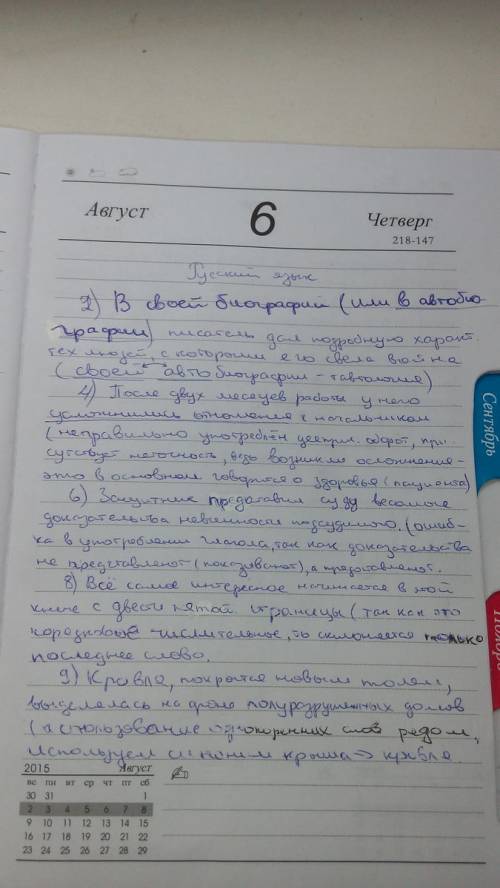 Август 6 Четверг
218-147
Русский язык
2) В своей биографии (или в автобио-
графии) писатель дал подробную характ.
тех людей, с которыми его свела война
(своей автобиография - тавтология)
4) После двух месяцев работы у него
усложнились отношения с начальником
(неправильно употреблён дееприч. оборот, при-
сутствует неточность, ведь возникли осложнения -
это в основном говорится о здоровье (пациента)
6) Защитник предоставил суду весомые
доказательства невиновности подсудимого. (ошиб-
ка в употреблении глагола, так как доказательства
не представляют (показывают), а предоставляют.
8) Всё самое интересное начинается в той
книге с двести пятой страницы (так как это
порядковые числительное, то склоняется только
последнее слово.
9) Кровля, покрытая новым толем,
выделялась на фоне полуразрушенных домов
(использование однокоренных слов рядом,
используем синоним крыша → кровля.
2015 Август
вс пн вт ср чт пт сб
30 31 1
2 3 4 5 6 7 8
9 10 11 12 13 14 15
16 17 18 19 20 21 22
23 24 25 26 27 28 29
Сентябрь